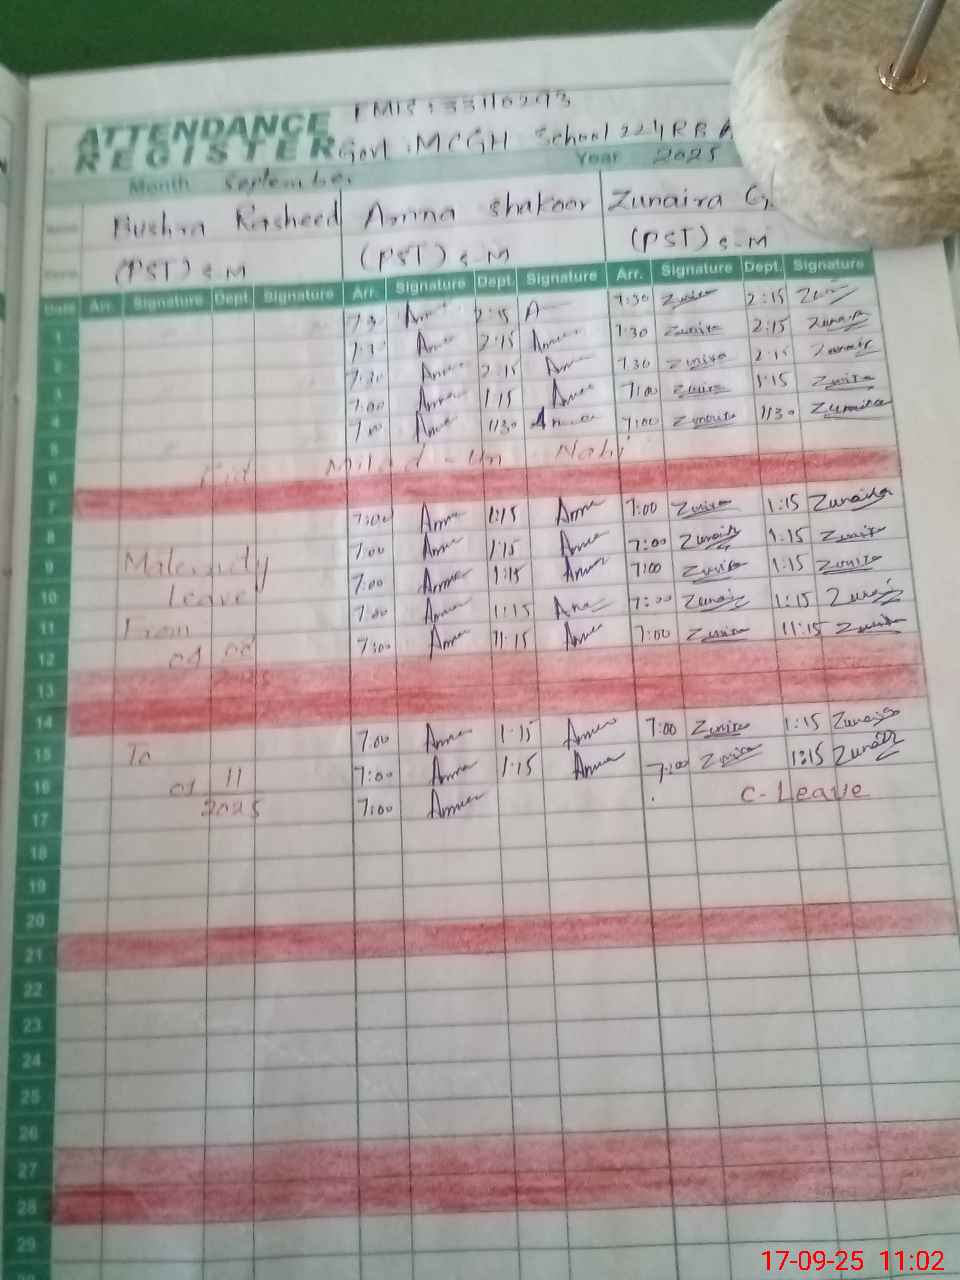 EMIS : 33110293
ATTENDANCE REGISTER
Govt : MCGH School 224 RB
Month September Year 2025
Bushra Rasheed Amna Shakoor Zunaira
(PST) S.M (PST) S.M (PST) S.M
Date Arr. Signature Dept. Signature Arr. Signature Dept. Signature Arr. Signature Dept. Signature
1 7:3 Amna 2:15 A 7:30 Zunira 2:15 Zun
2 7:3 Amna 2:15 Amna 7:30 Zunira 2:15 Zunaira
3 7:30 Amna 2:15 Am 7:30 Zunira 2:15 Zunair
4 7:00 Amna 1:15 Amna 7:00 Zunira 1:15 Zunira
5 7:00 Amna 1130 Amna 7:00 Zunaira 1130 Zunaira
6 Eid Milad-Un-Nabi
7
8 7:00 Amna 1:15 Amna 7:00 Zunira 1:15 Zunaira
9 Maternity 7:00 Amna 1:15 Amna 7:00 Zunaira 1:15 Zunaira
10 Leave 7:00 Amna 1:15 Amna 7:00 Zunira 1:15 Zunira
11 From 7:00 Amna 1:15 Amna 7:00 Zunaira 1:15 Zunaira
12 01 08 7:00 Amna 11:15 Amna 7:00 Zunira 11:15 Zunira
13 2025
14
15 To 7:00 Amna 1:15 Amna 7:00 Zunira 1:15 Zunaira
16 01 11 7:00 Amna 1:15 Amna 7:00 Zunira 1:15 Zunaira
17 2025 7:00 Amna C-Leave
18
19
20
21
22
23
24
25
26
27
28
29
17-09-25 11:02